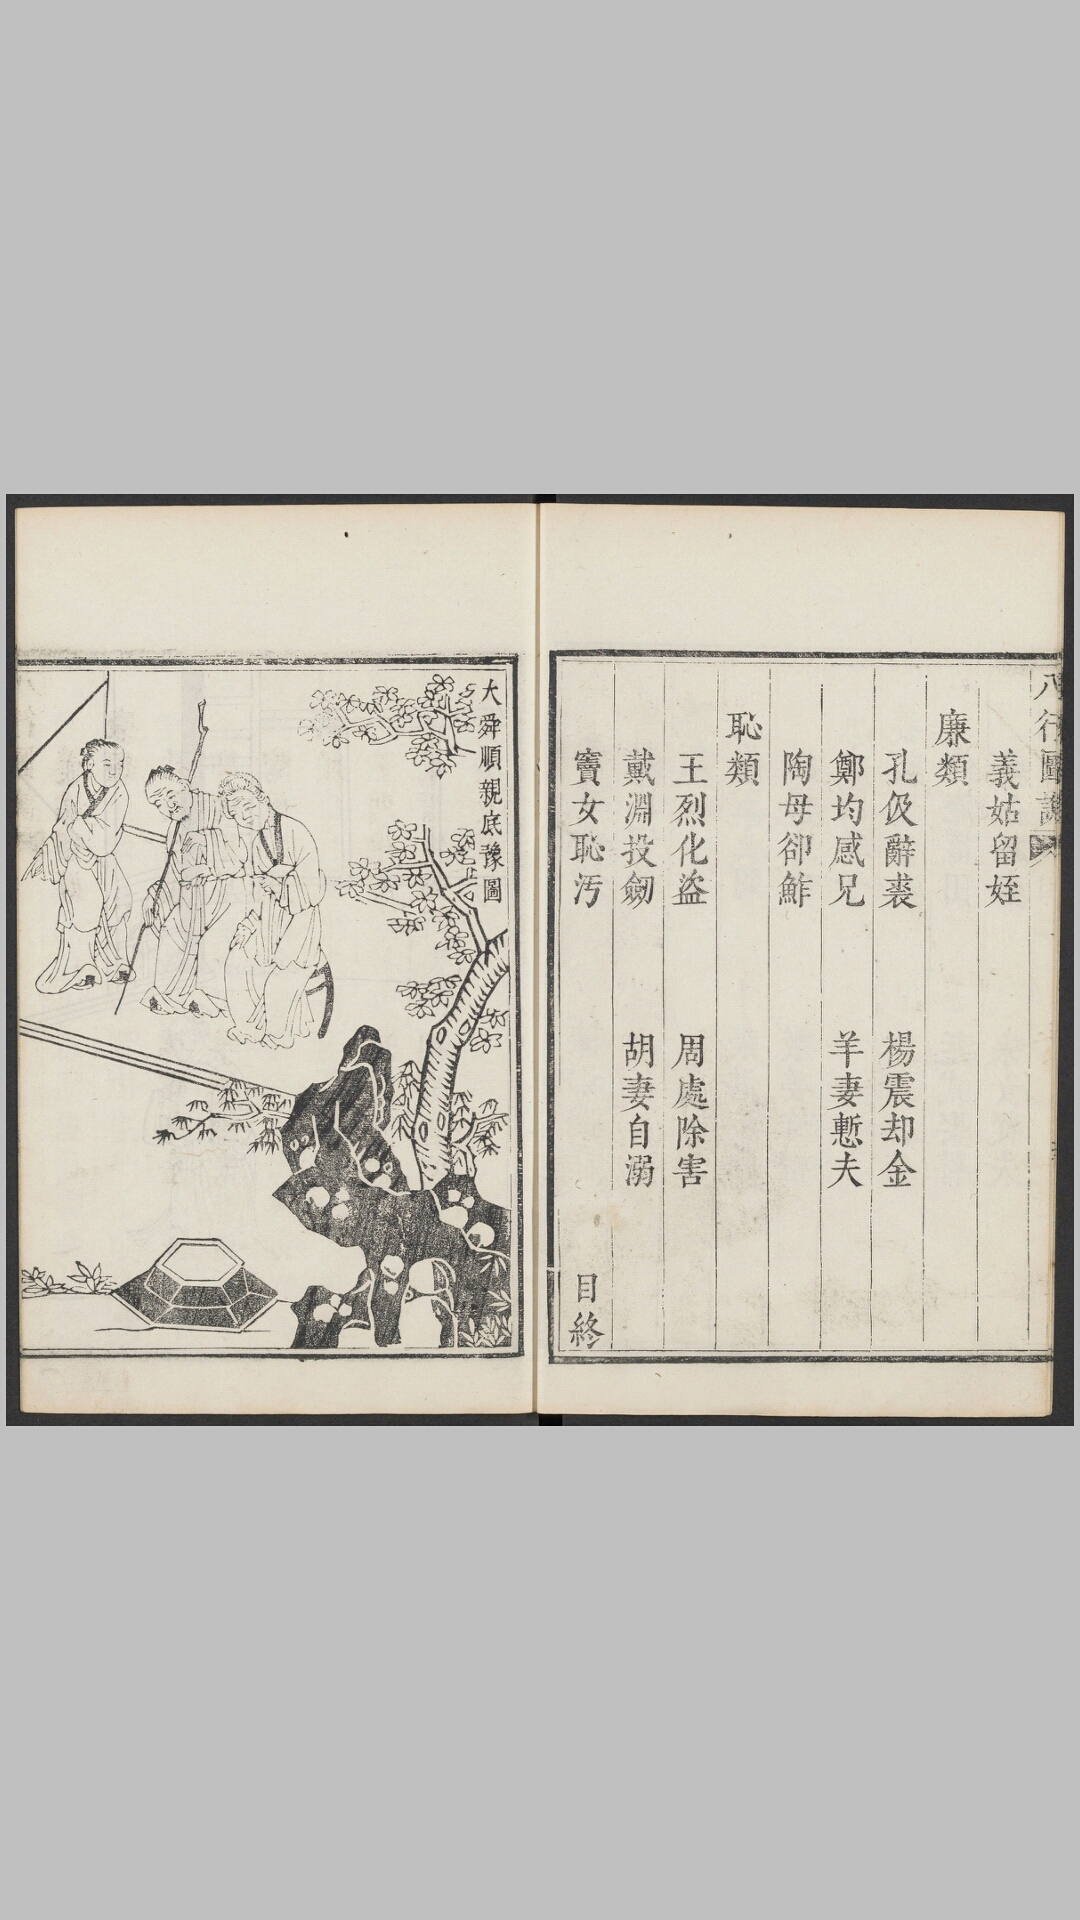 八行圖說
義姑留姪
廉類
孔伋辭裘 楊震却金
鄭均感兄 羊妻慙夫
陶母卻鮓
恥類
王烈化盜 周處除害
戴淵投劒 胡妻自溺
竇女恥汚 目終
大舜順親底豫圖